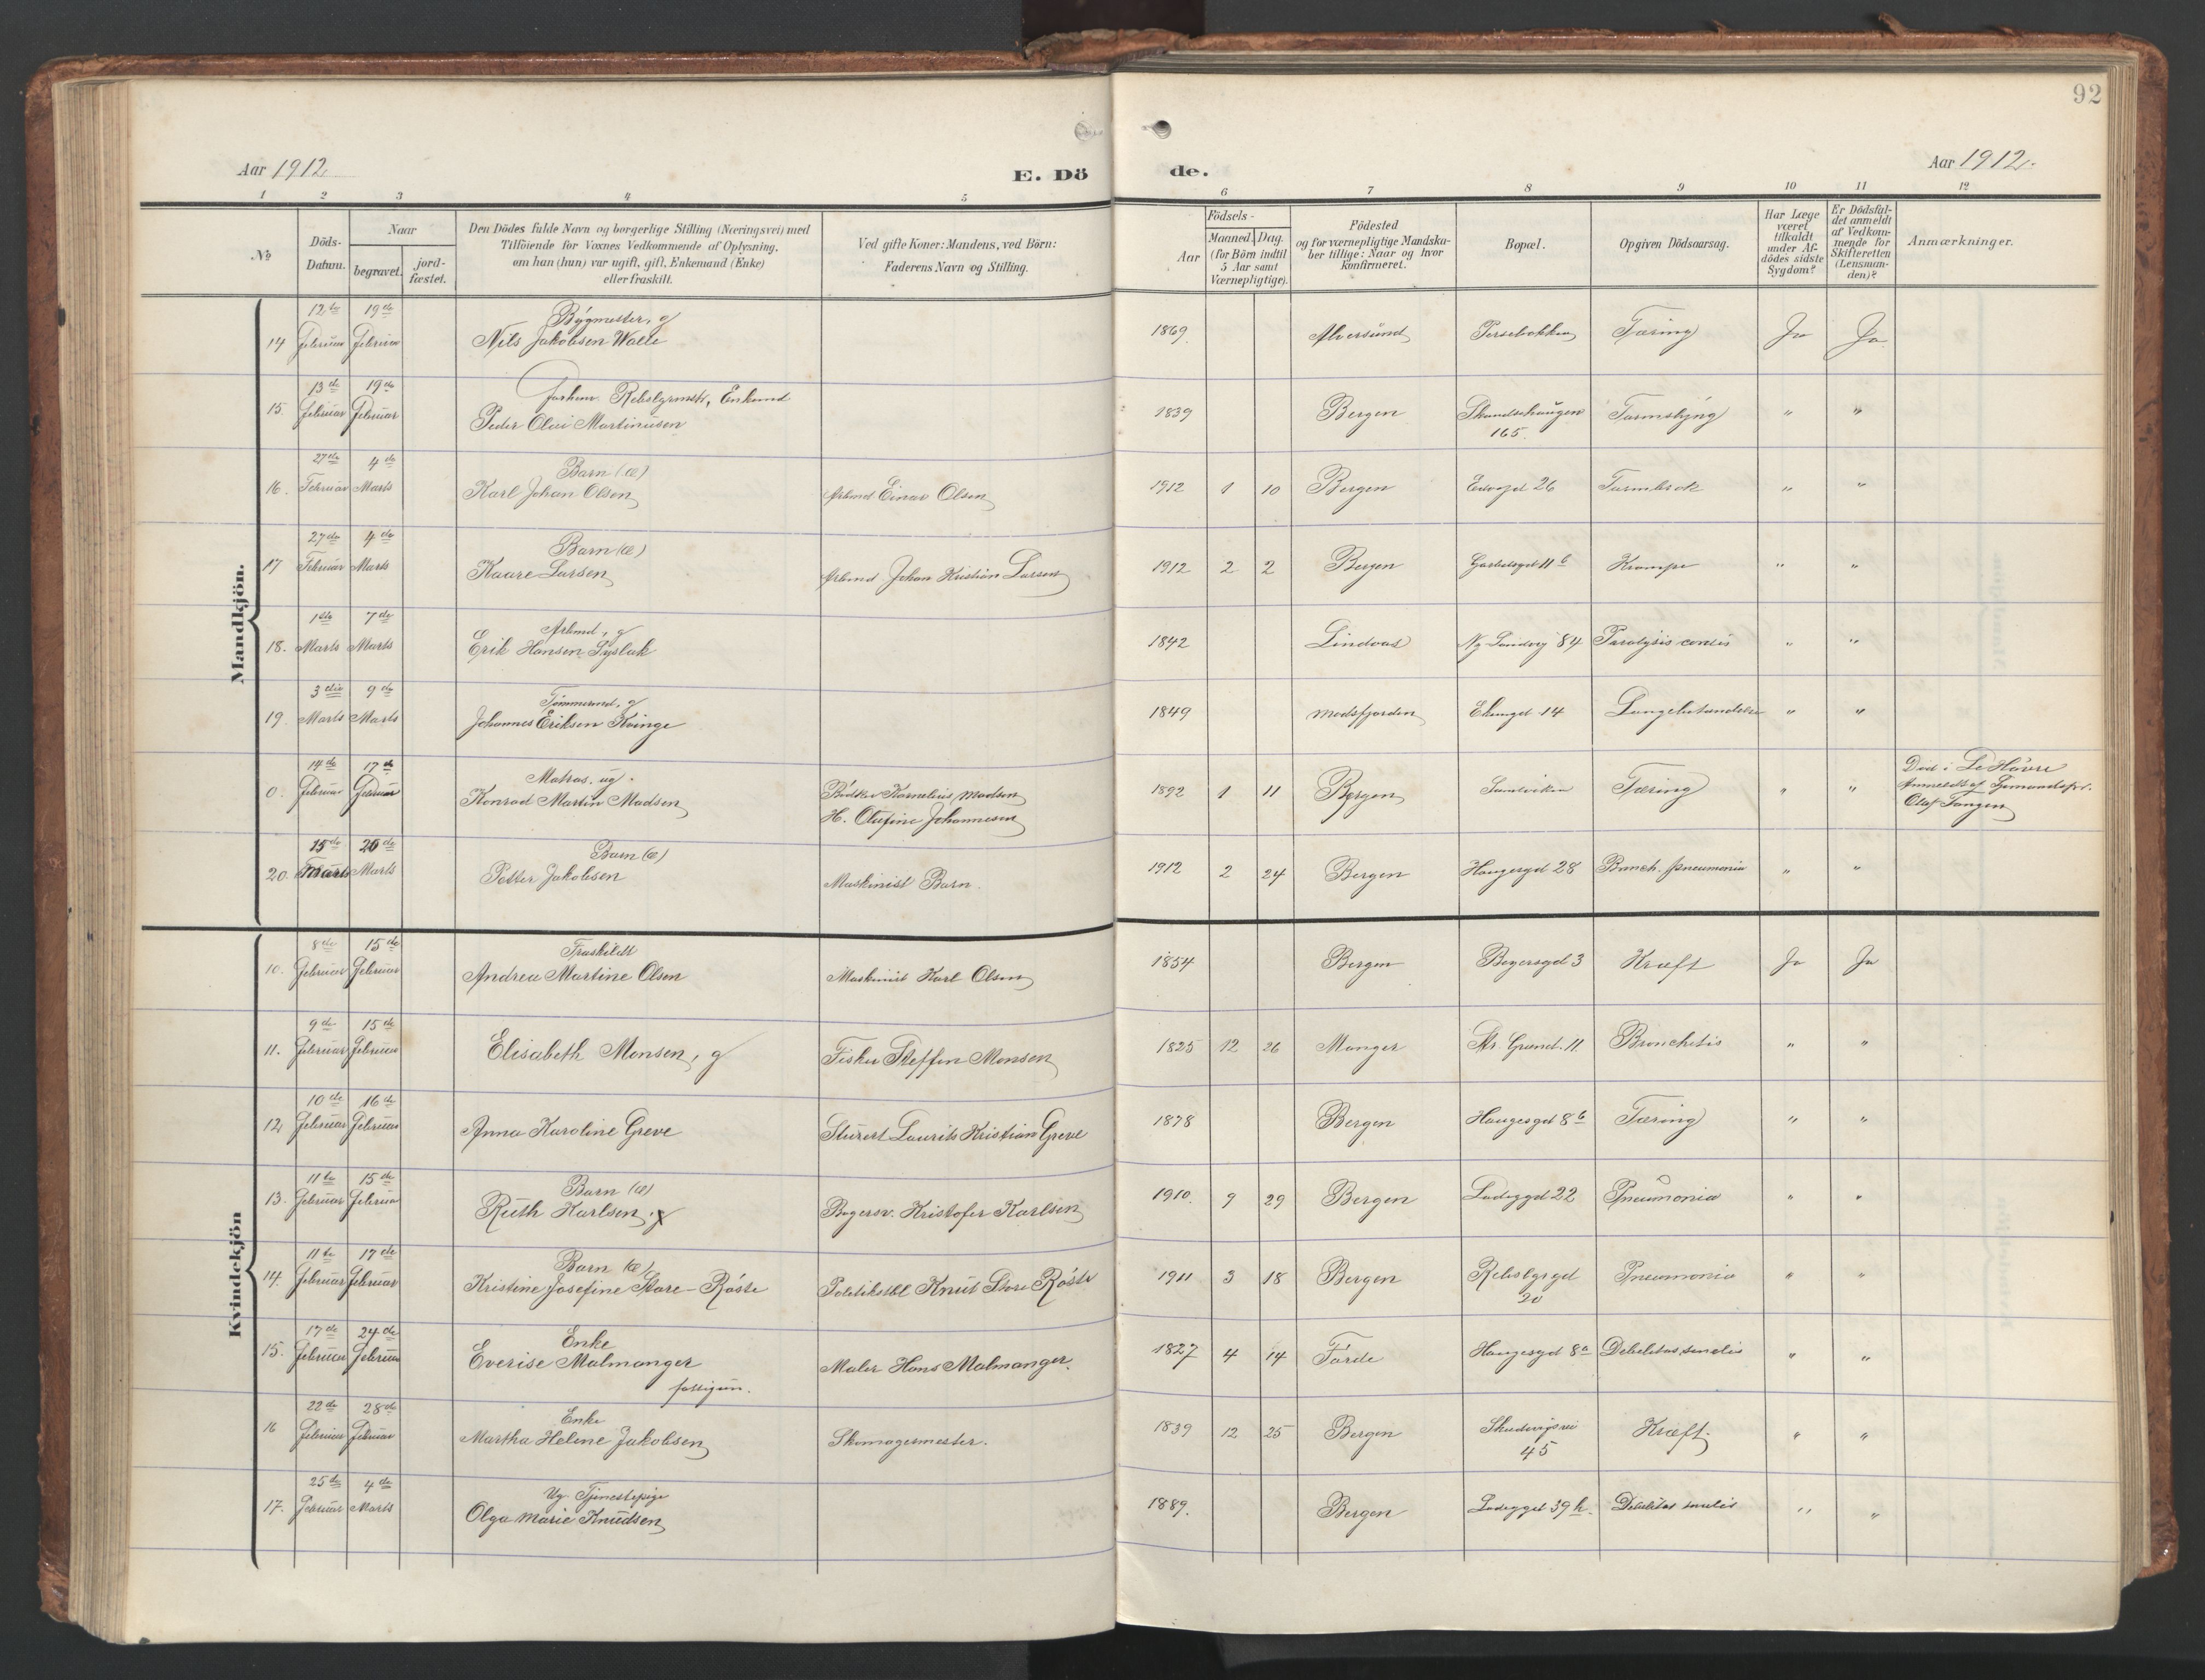 92
Aar 1912.
E. Dö
de.
Aar 1912.
1 2 3 4 5 6 7 8 9 10 11 12
№
Döds-
Datum.
Naar
begravet.
jord-
fæstet.
Den Dödes fulde Navn og borgerlige Stilling (Næringsvei) med
Tilföiende for Voxnes Vedkommende af Oplysning,
om han (hun) var ugift, gift, Enkemand (Enke)
eller fraskilt.
Ved gifte Koner: Mandens, ved Börn:
Faderens Navn og Stilling.
Födsels-
Aar
Maaned. Dag.
(for Börn indtil
5 Aar samt
Værnepligtige).
Födested
og for værnepligtige Mandska-
ber tillige: Naar og hvor
Konfirmeret.
Bopæl.
Opgiven Dödsaarsag.
Har Læge
været
tilkaldt
under Af-
dödes sidste
Sygdom?
Er Dödsfal-
det anmeldt
af Vedkom-
mende for
Skifteretten
(Lensman-
den)?
Anmærkninger.
Mandkjön.
12te 19de Bygmester, g
14 Februar Februar Nils Jakobsen Walle 1869. Alversund Tæring Ja Ja
13de 19de Forhenv. Enkemd
15. Februar Februar Peder Olai Martinusen 1839 Bergen Skandsehaugen Tarmslyng " "
165.
27de 4de Barn (æ)
16. Februar Marts Karl Johan Olsen Arbmd Einar Olsen 1912 1 10 Bergen 26 Tarmbrok " "
27de 4de Barn (æ)
17 Februar Marts Kaare Larsen Arbmd Johan Kristian Larsen 1912 2 2 Bergen 11b Krampe " "
1ste 7de Arbmd, g
18. Marts Marts Erik Hansen Syslak 1842 Lindaas Ny Sandvig 84 Paralysis cordis " "
3die 9de Tømmermd, g
19. Marts Marts Johannes Eriksen Kvinge 1849 Modsfjorden 14 Lungebetændelse " "
14de 17de Matros, ug.
0. Februar Februar Konrad Martin Madsen Bødker Kornelius Madsen 1892 1 11 Bergen Sandviken Tæring " " Død i Le Havre
H. Olufine Johannesen Anmeldt af
Olaf Tangen
15de 20de Barn (æ)
20. Marts Marts Petter Jakobsen Maskinist Barn. 1912 2 24 Bergen Haugesgd 28 Bronch. pneumonia " "
Kvindekjön
8de 15de Fraskildt
10. Februar Februar Andrea Martine Olsen Maskinist Karl Olsen 1854 Bergen Beyersgd 3 Kræft Ja Ja
9de 15de
11. Februar Februar Elisabeth Monsen, g Fisker Steffen Monsen 1825 12 26 Manger 11. Bronchitis " "
10de 16de
12, Februar Februar Anna Karoline Greve Stuert Laurits Kristian Greve 1878 Bergen Haugesgd 8b Tæring " "
11te 15de Barn (æ)
13. Februar Februar Ruth Karlsen Bagersv. Kristofer Karlsen 1910. 9 29 Bergen Ladeggd 22 Pneumonia " "
11te 17de Barn (æ)
14. Februar Februar Kristine Josefine Støre-Røste Politikstbl Knut Støre Røste 1911 3 18 Bergen Rebslgrgd Pneumonia " "
20
17de 24de Enke
15. Februar Februar Everise Malmanger Maler Hans Malmanger. 1827 4 14 Førde Haugesgd 8a Debilitas senilis " "
fattigun.
22de 28de Enke
16 Februar Februar Martha Heline Jakobsen Skomagermester. 1839 12 25 Bergen Skudevigsvei Kræft. " "
45
25de 4de Ug. Tjenestepige
17. Februar Marts Olga Marie Knudsen 1889. Bergen Ladeggd 39 Debilitas senilis " "